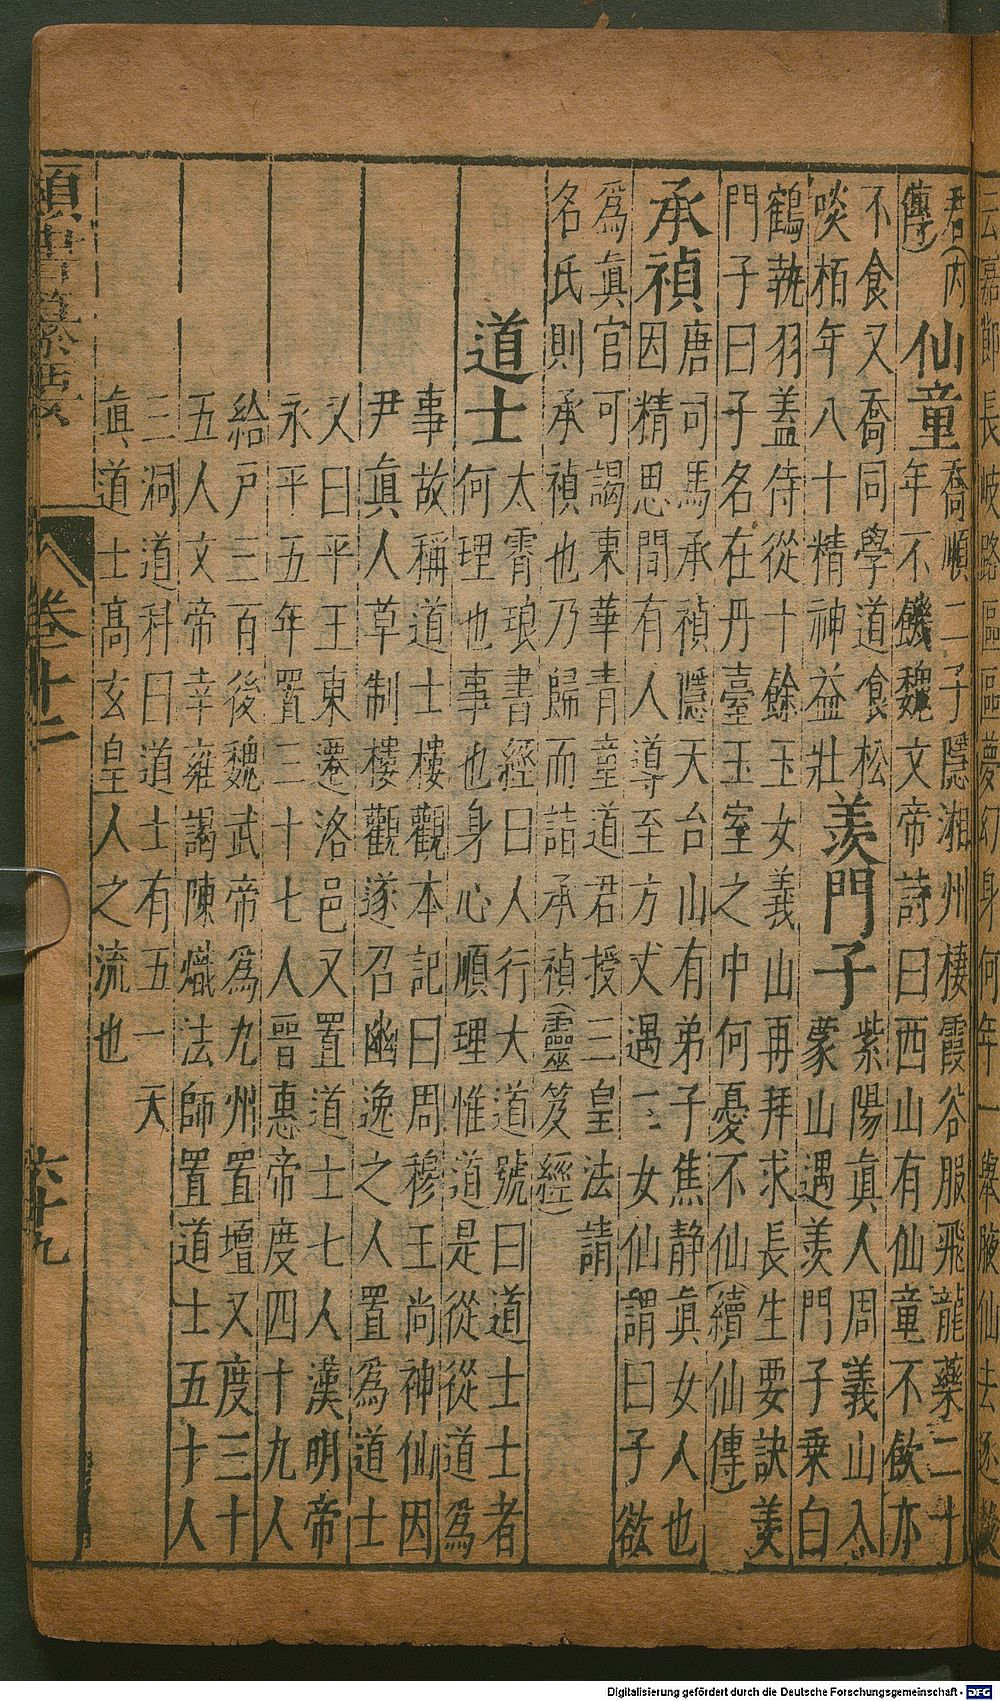 云嘉節長岐路區區夢幻身何年一舉腋仙去逐
君（内仙童喬順二子隱湘州棲霞谷服飛龍藥二十
傳）年不饑魏文帝詩曰西山有仙童不飲亦
不食又喬同學道食松羨門子紫陽眞人周義山入
啖栢年八十精神益壯蒙山遇羨門子乗白
鶴執羽蓋侍從十餘玉女義山再拜求長生要訣羨
門子曰子名在丹臺玉室之中何憂不仙（續仙傳）
承禎唐司馬承禎隱天台山有弟子焦静眞女人也
因精思間有人導至方丈遇二女仙謂曰子欲
爲眞官可謁東華青童道君授三皇法請
名氏則承禎也乃歸而詣承禎（靈笈經）
道士太霄琅書經曰人行大道號曰道士士者
何理也事也身心順理惟道是從從道爲
事故稱道士樓觀本記曰周穆王尚神仙因
尹眞人草制樓觀遂召幽逸之人置爲道士
又曰平王東遷洛邑又置道士七人漢明帝
永平五年置三十七人晋惠帝度四十九人
給戸三百後魏武帝爲九州置壇又度三十
五人文帝幸雍謁陳熾法師置道士五十人
三洞道科曰道士有五一天
眞道士高玄皇人之流也
卷十二
六十九
Digitalisierung gefördert durch die Deutsche Forschungsgemeinschaft - DFG